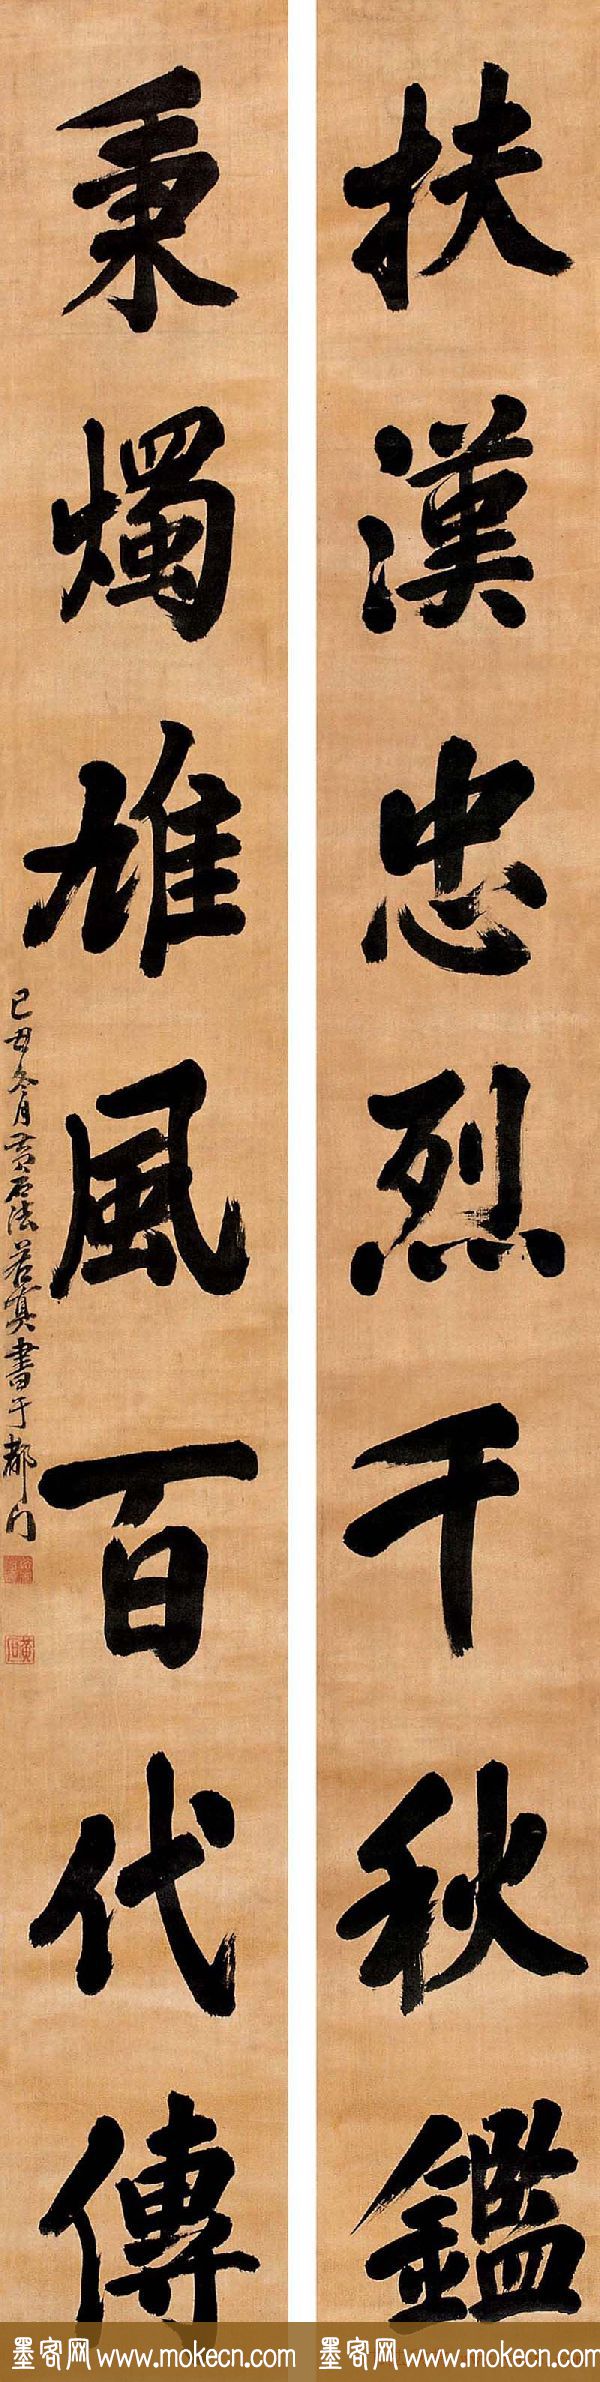 扶漢忠烈千秋鑑
秉燭雄風百代傳
己丑冬月黄石法若真書于都门
墨客网 www.mokecn.com
墨客网 www.mokecn.com